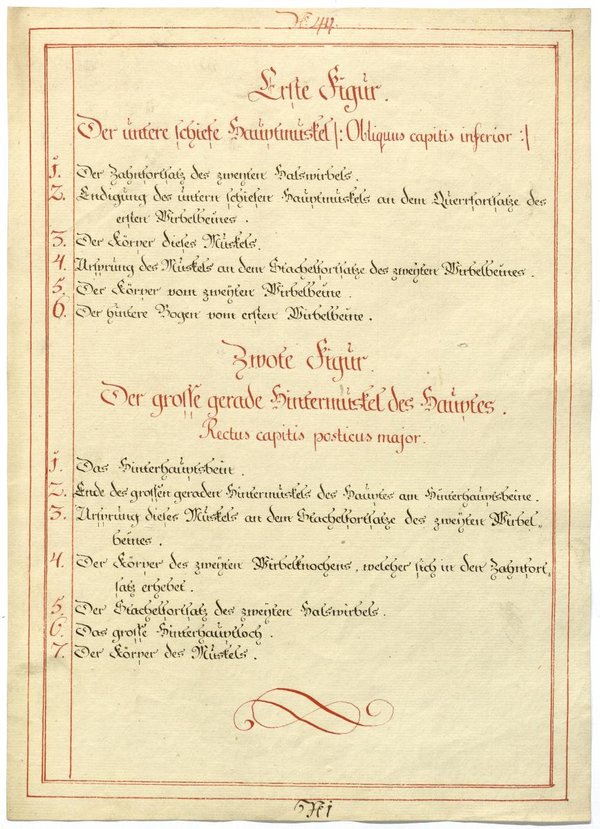 N° 44.
Erste Figur.
Der untere schiefe Hauptmuskel |: Obliquus capitis inferior :|
1. Der Zahnfortsatz des zweyten Halswirbels.
2. Endigung des untern schiefen Hauptmuskels an dem Querrfortsatze des
ersten Wirbelbeines.
3. Der Körper dieses Muskels.
4. Ursprung des Muskels an dem Stachelfortsatze des zweyten Wirbelbeines.
5. Der Körper vom zweyten Wirbelbeine.
6. Der hintere Bogen vom ersten Wirbelbeine.
Zwote Figur.
Der grosse gerade Hintermuskel des Hauptes.
Rectus capitis posticus major.
1. Das Hinterhauptsbein.
2. Ende des grossen geraden Hintermuskels des Hauptes am Hinterhauptsbeine.
3. Ursprung dieses Muskels an dem Stachelfortsatze des zweyten Wirbel„
beines.
4. Der Körper des zweyten Wirbelknochens, welcher sich in den Zahnfort„
satz erhebet.
5. Der Stachelfortsatz des zweyten Halswirbels.
6. Das grosse Hinterhauptloch.
7. Der Körper des Muskels.